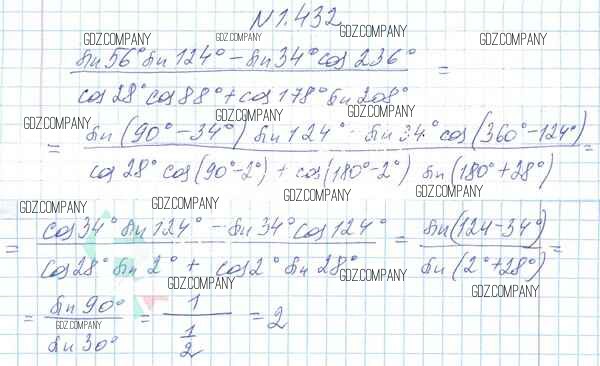 N 1.432
GDZ.COMPANY GDZ.COMPANY GDZ.COMPANY
sin 56° sin 124° - sin 34° cos 236°
=
cos 28° cos 88° + cos 178° sin 208°
GDZ.COMPANY GDZ.COMPANY GDZ.COMPANY GDZ.COMPANY
= sin (90° - 34°) sin 124° - sin 34° cos (360° - 124°) =
cos 28° cos (90° - 2°) + cos (180° - 2°) sin (180° + 28°)
GDZ.COMPANY GDZ.COMPANY GDZ.COMPANY GDZ.COMPANY
= cos 34° sin 124° - sin 34° cos 124° = sin (124 - 34°) =
cos 28° sin 2° + cos 2° sin 28° sin (2° + 28°)
GDZ.COMPANY GDZ.COMPANY GDZ.COMPANY
= sin 90° = 1 = 2
GDZ.COMPANY
sin 30° 1/2